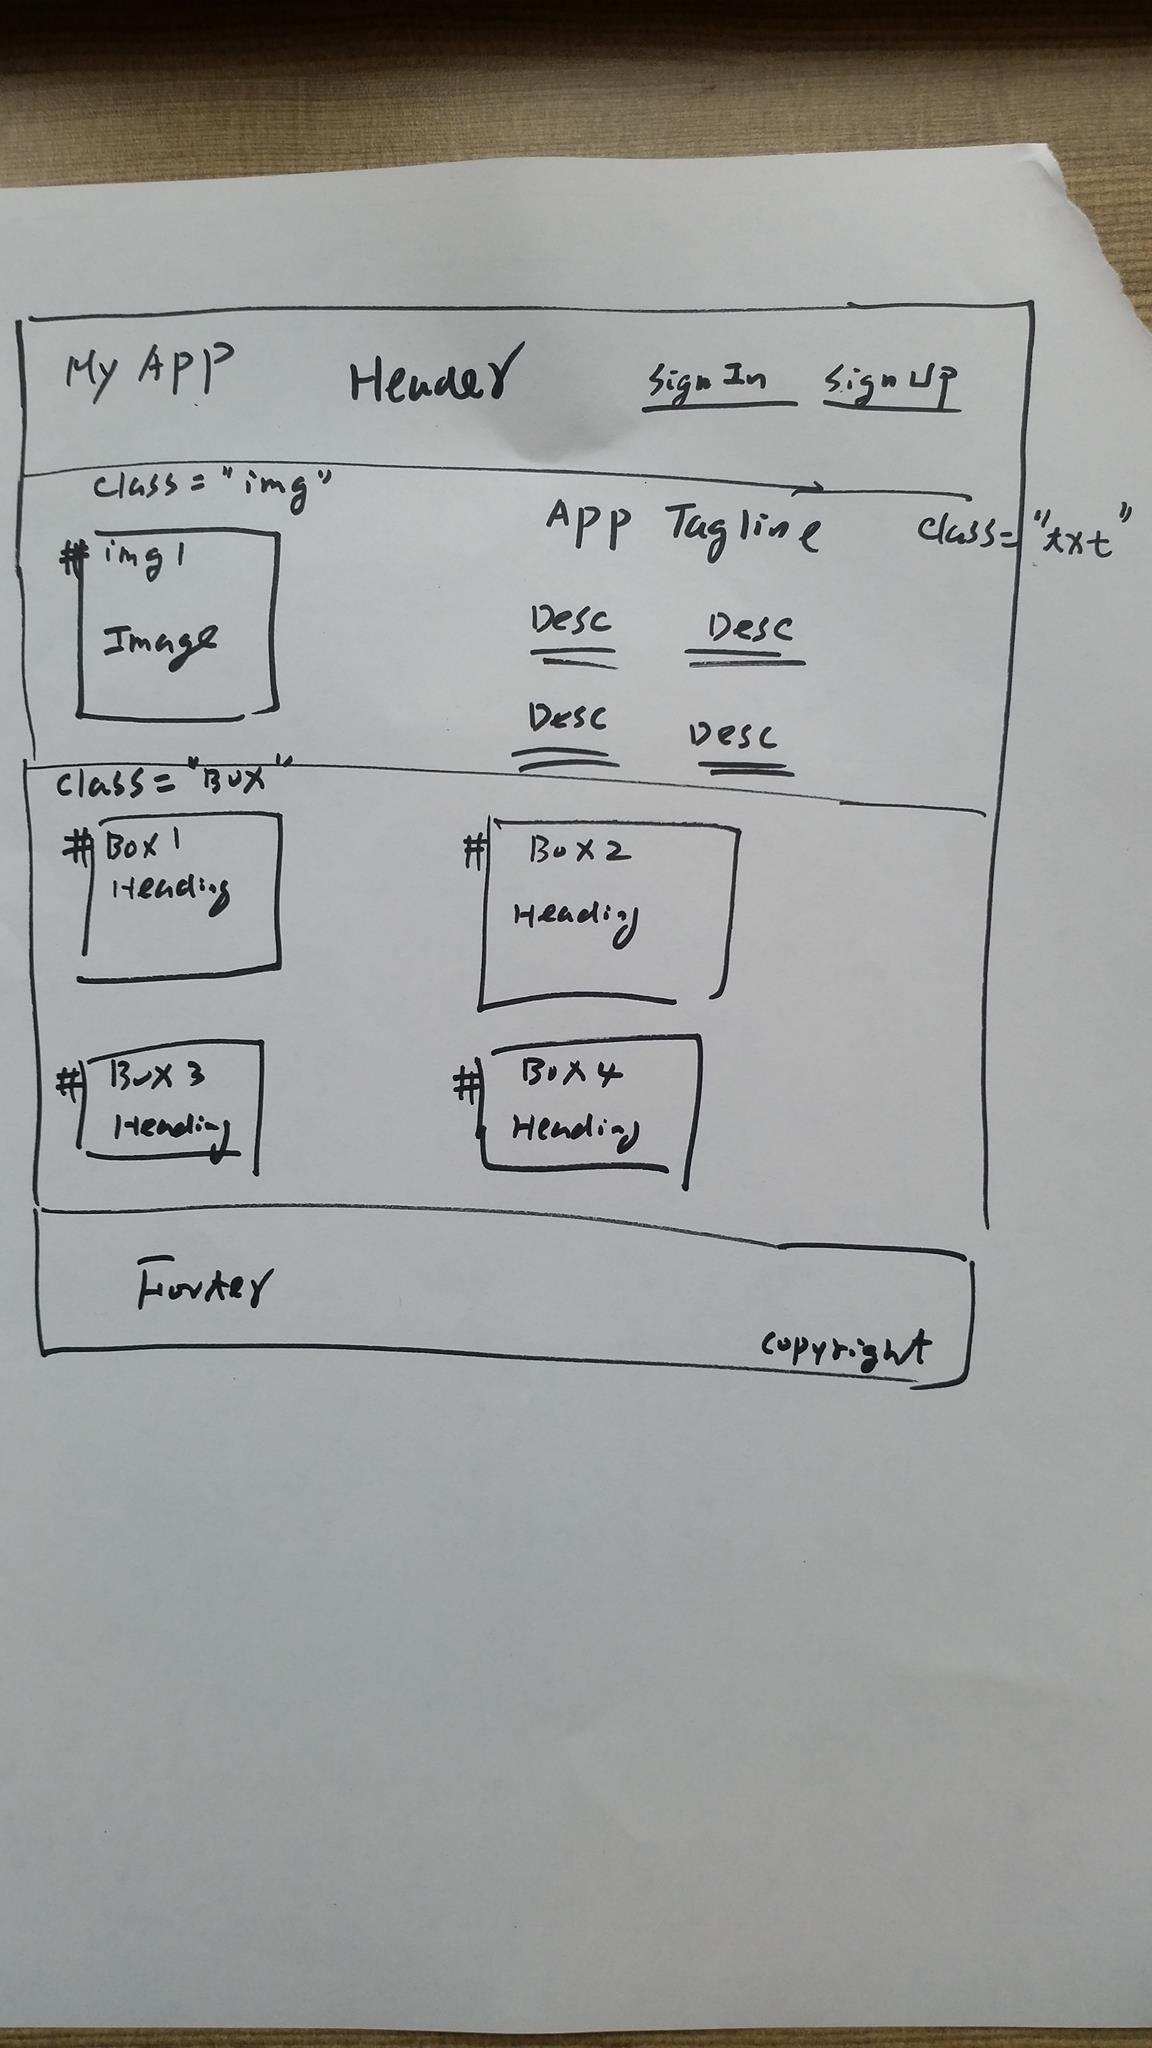 My APP Header Sign In Sign Up
class = "img"
App Tagline class = "txt"
# img 1
Image
Desc Desc
Desc Desc
class = "Box"
# Box 1
Heading
# Box 2
Heading
# Box 3
Heading
# Box 4
Heading
Footer
copyright